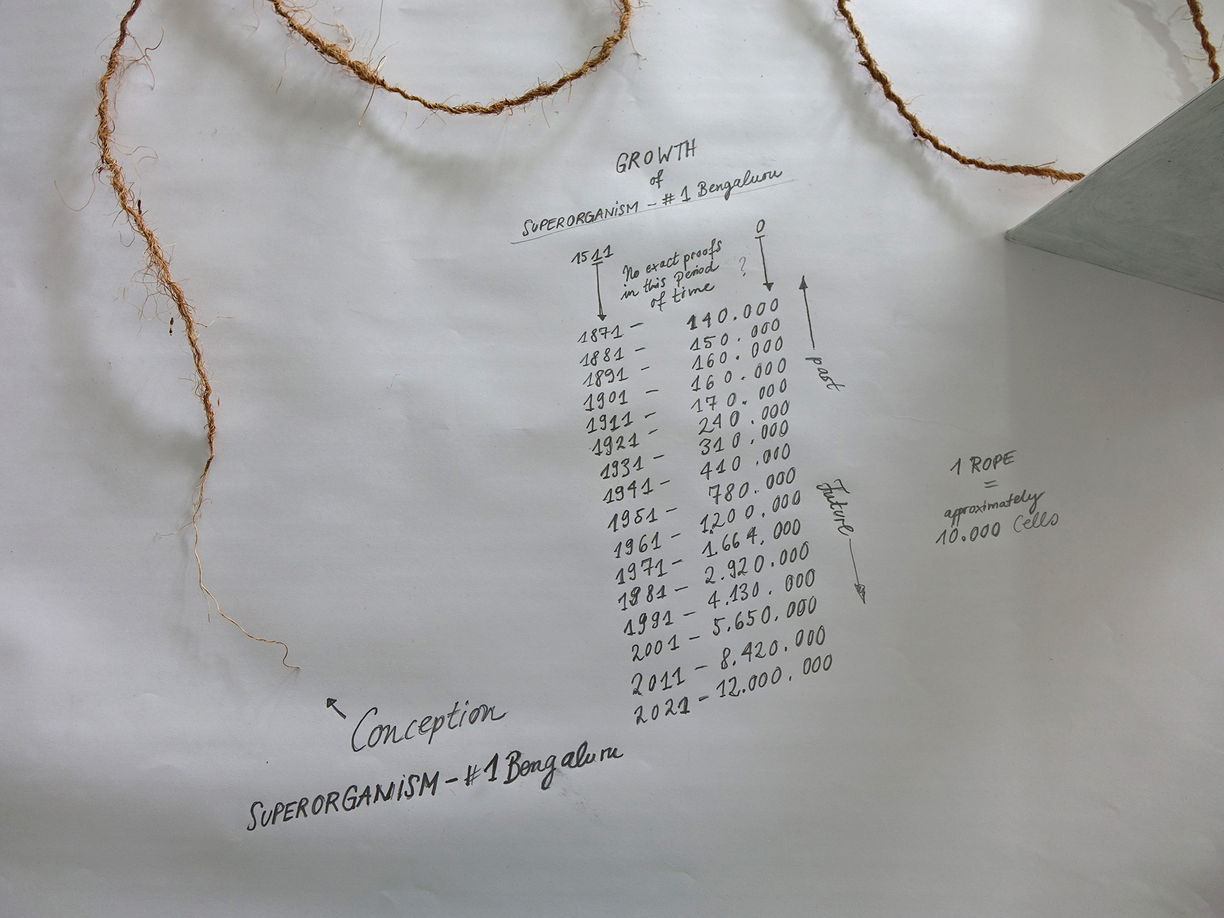 GROWTH
of
SUPERORGANISM - #1 Bengaluru
1511 0
No exact proofs
in this Period ?
of time
1871 - 140.000
1881 - 150.000
1891 - 160.000
1901 - 160.000
1911 - 170.000
1921 - 240.000
1931 - 310.000
1941 - 410.000
1951 - 780.000
1961 - 1.200.000
1971 - 1.664.000
1981 - 2.920.000
1991 - 4.130.000
2001 - 5.650.000
2011 - 8.420.000
2021 - 12.000.000
past
Future
1 ROPE
=
approximately
10.000 Cells
Conception
SUPERORGANISM - #1 Bengaluru